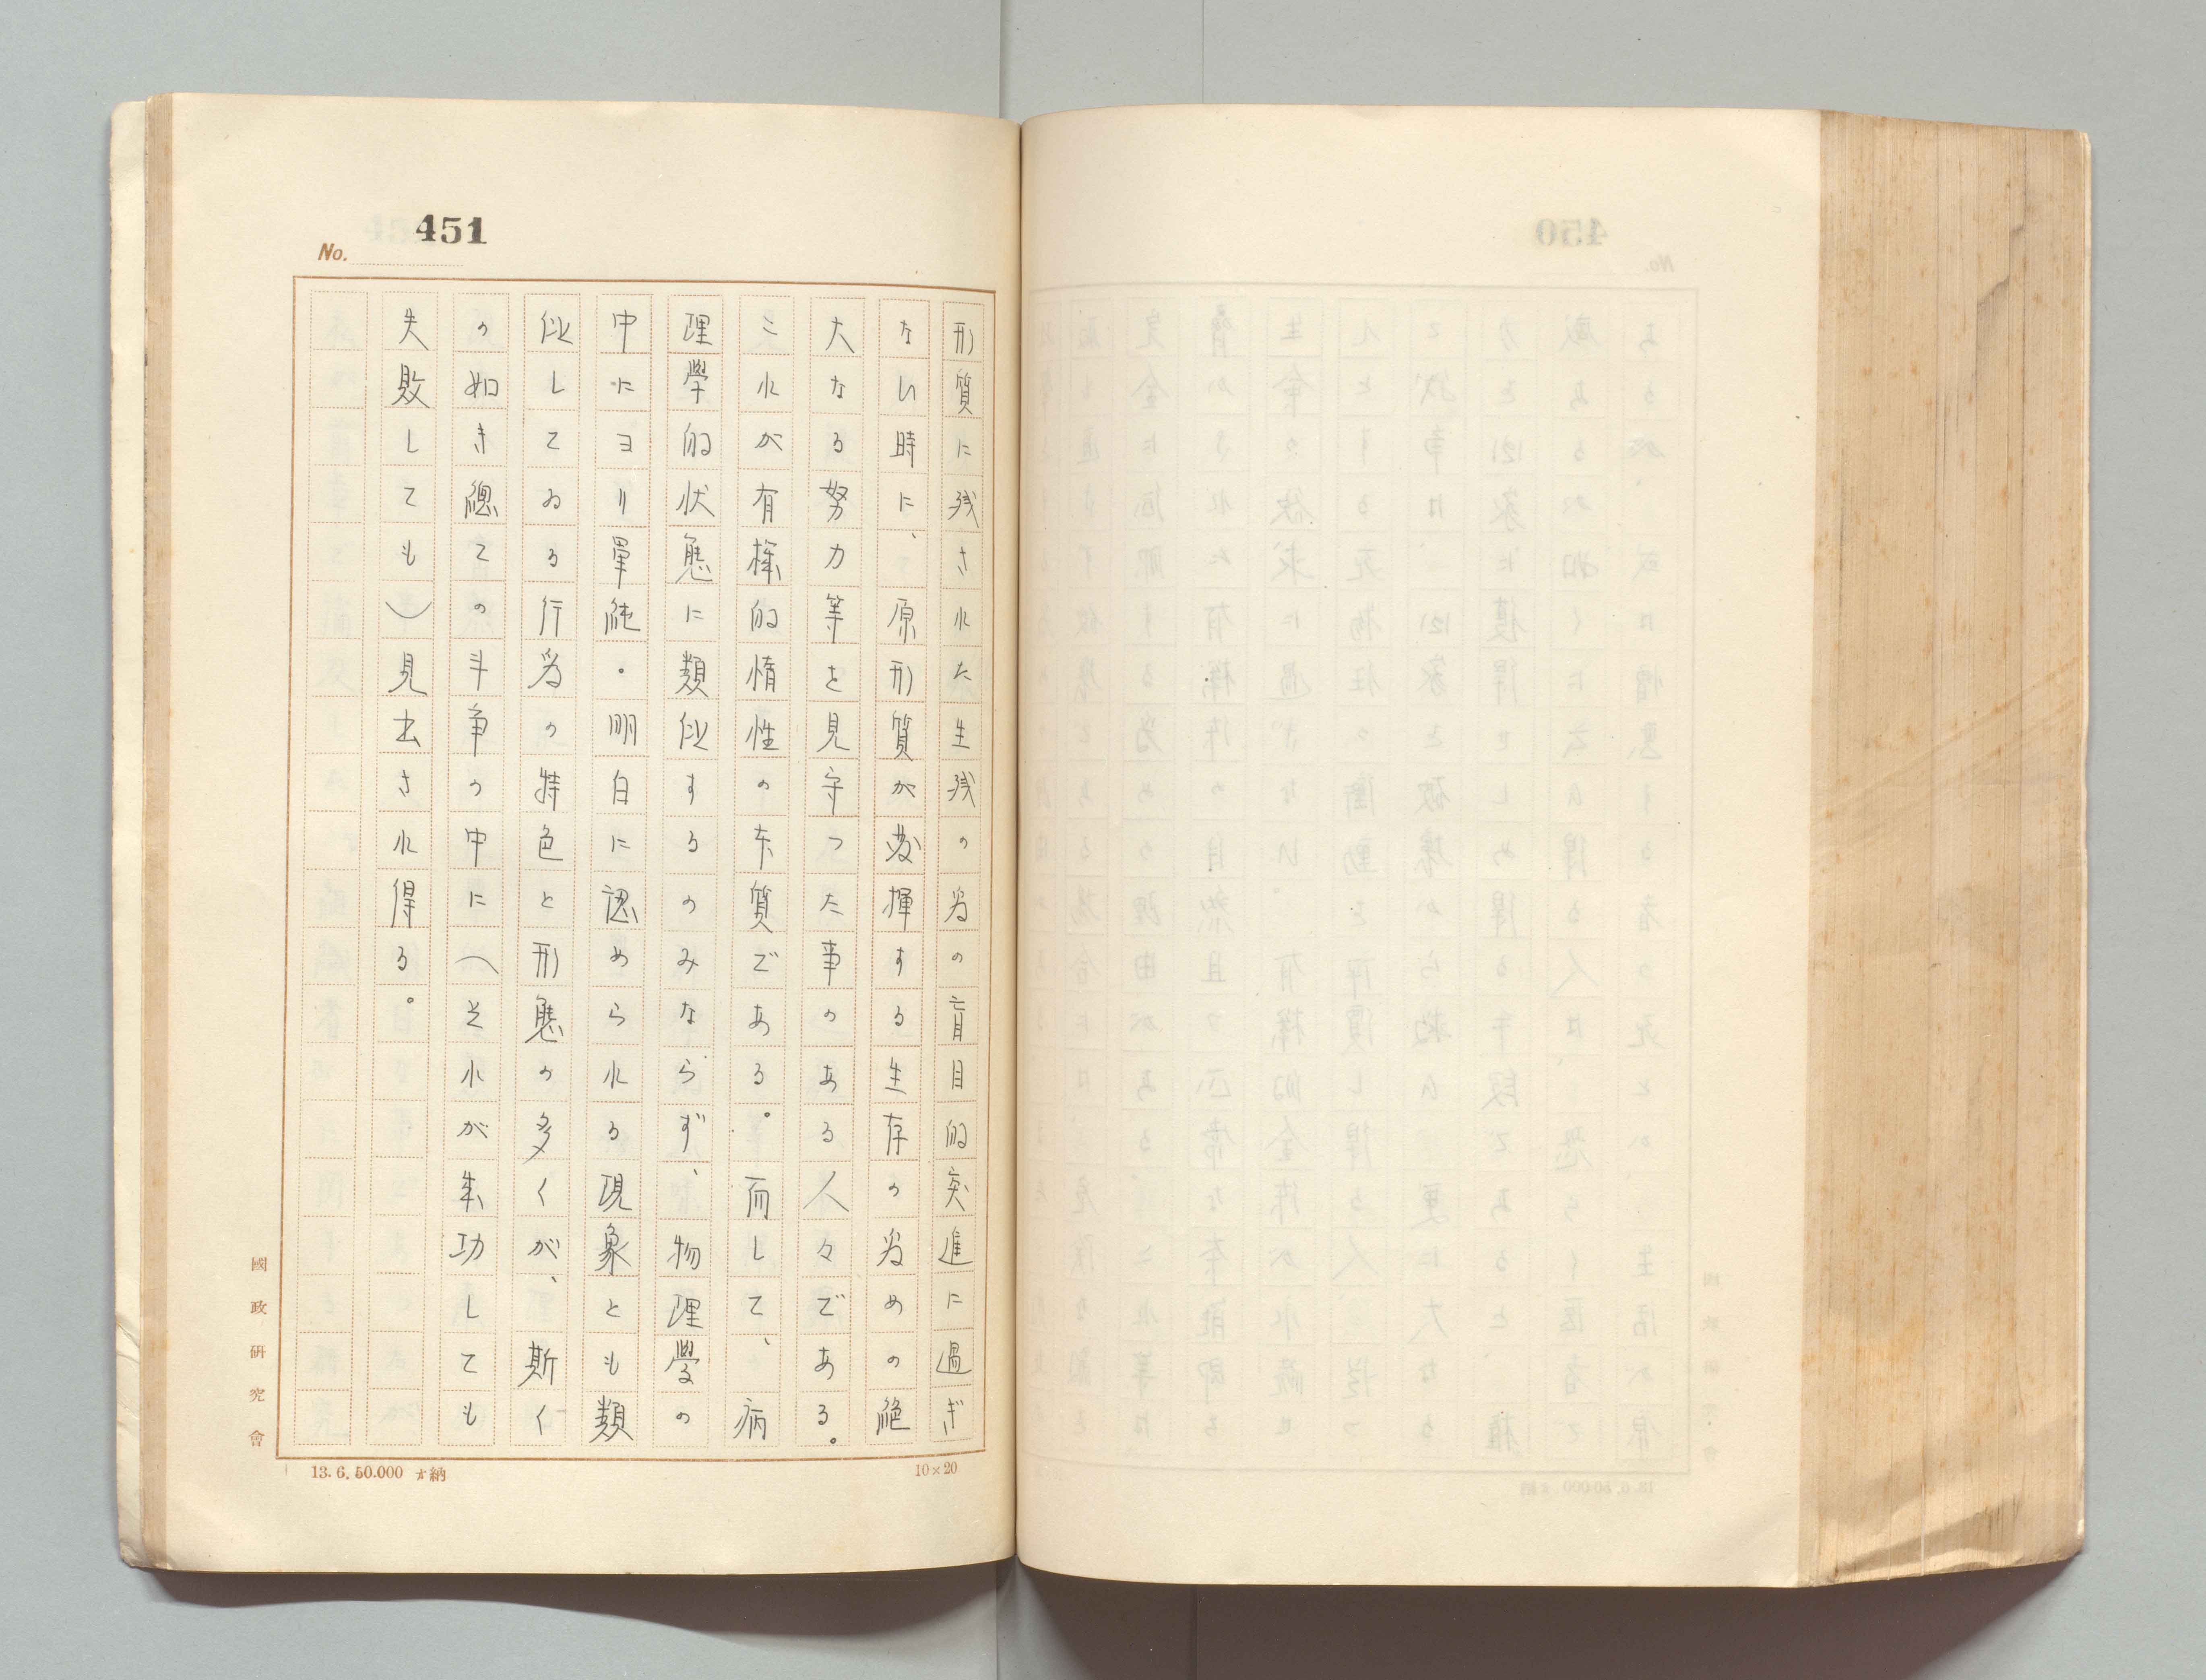 451
No.
形質に残された生残の為の盲目的突進に過ぎ
ない時に、原形質が発揮する生存の為めの絶
大なる努力等を見守つた事のある人々である。
これが有様的惰性の本質である。而して、病
理學的状態に類似するのみならず、物理學の
中にヨリ単純・明白に認められる現象とも類
似してゐる行為の特色と形態の多くが、斯く
の如き總ての斗争の中に(それが成功しても
失敗しても)見出され得る。
國政研究會
13.6.50.000 納
10×20